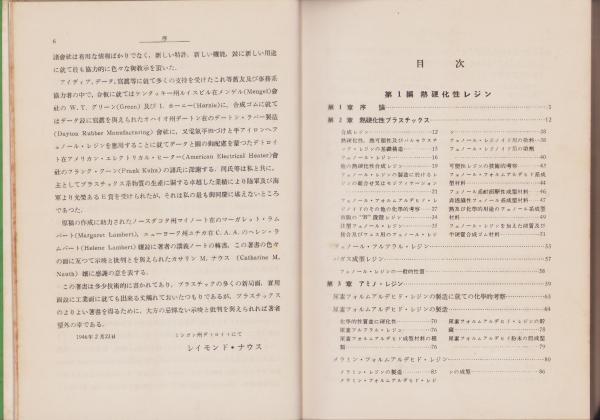 6 序
諸會社は有用な情報ばかりでなく、新しい特許、新しい機能、並に新しい用途
に就て最も協力的に色々な御敎示を頂いた。
アイディア、データ、寫眞等に就て多くの支持を受けたこれ等舊友及び事務系
協力者の中で、合板に就てはケンタッキー州ルイスビル在メンゲル(Mengel)會
社の W. T. グリーン(Green) 及び I. ホーニー(Hornie)に、合成ゴムに就て
はデータ並に寫眞を與えられたオハイオ州デートン在のデートン・ラバー製造
(Dayton Rubber Manufacturing) 會社に、又電氣平向づけと手アイロンへフ
ェノール・レジンを應用することに就てデータと圖の御配慮を蒙つたデトロイ
ト在アメリカン・エレクトリカル・ヒーター(American Electrical Heater)會
社のフランク・クーン(Frank Kuhn) の諸氏に深謝する。同氏等は私と共に、
主としてプラスチックス系物質の生産に關する卓越した業績により陸軍及び海
軍より光榮ある E 賞を受けられたが、それは私の最も御同慶に堪えないところ
であつた。
原稿の作成に助力されたノースダコタ州マイノート在のマーガレット・ラム
バート(Margaret Lambert)、ニューヨーク州ユチカ在 C. A. A. のヘレン・ラ
ムバート(Helene Lambert) 孃並に著者の講義ノートの轉寫、この著書の色々
の面に亙つて示唆と批判とを與えられたカサリン M. ナウス (Catharine M.
Nauth) 孃に感謝の意を表する。
この著書は多少技術的に書かれてあり、プラスチックの多くの新局面、實用
面並に工業面に就ても出來る丈觸れておいたつもりであるが、プラスチックス
のよりよい著書を得るために、大方の忌憚ない示唆と批判を與えられれば著者
望外の幸である。
1946年2月22日 ミシガン州デトロイトにて
レイモンド・ナウス
目次
第1編 熱硬化性レジン
第1章 序論 1
第2章 熱硬化性プラスチックス 12
合成レジン 12
熱硬化性、熱可塑性及びエルセスチ
ック・レジンの基礎構造 15
フェノール・レジン 16
他の熱硬化性合成レジン 19
フェノール・レジンの製造に於けるレ
ジンの組合せ又はモジフィケーション
21
フェノール・フォルムアルデヒド・レ
ジノイドの其の他の化學的考察 27
樹脂の“B”段階レジン 34
注型フェノール・レジン 35
接合及びワニス用のフェノール・レジ
ン 38
フェノール・レジノイド用の染料 38
フェノール・レジノイド用の充塡劑
40
可塑性レジンの技術的考察 43
フェノール・アルデヒド・レジノイド系成型
材料 44
フェノール系耐衝擊性成型材料 46
非透過性フェノール系成型材料 47
熱及び化學的用途のフェノール系成型
材料 49
フェノール・レジンを加えた紙質及び
半硬質合成ゴム材料 51
フェノール・フルフラル・レジン 53
バガス成型レジン 57
フェノール・レジンの一般的性質 58
第3章 アミノ・レジン 59
尿素フォルムアルデヒド・レジンの製造に就ての化學的考察 63
尿素フォルムアルデヒド・レジンの製造 64
化學的性質並に硬化性 70
尿素フルフラル・レジン 76
尿素フォルムアルデヒド成型材料の種
類 76
尿素フォルムアルデヒド・レジンの貯
藏 78
尿素フォルムアルデヒド粉末の型成型
79
メラミン・フォルムアルデヒド・レジン 80
メラミン・レジンの製造 83
メラミン・フォルムアルデヒド・レジ
ンの成型 86